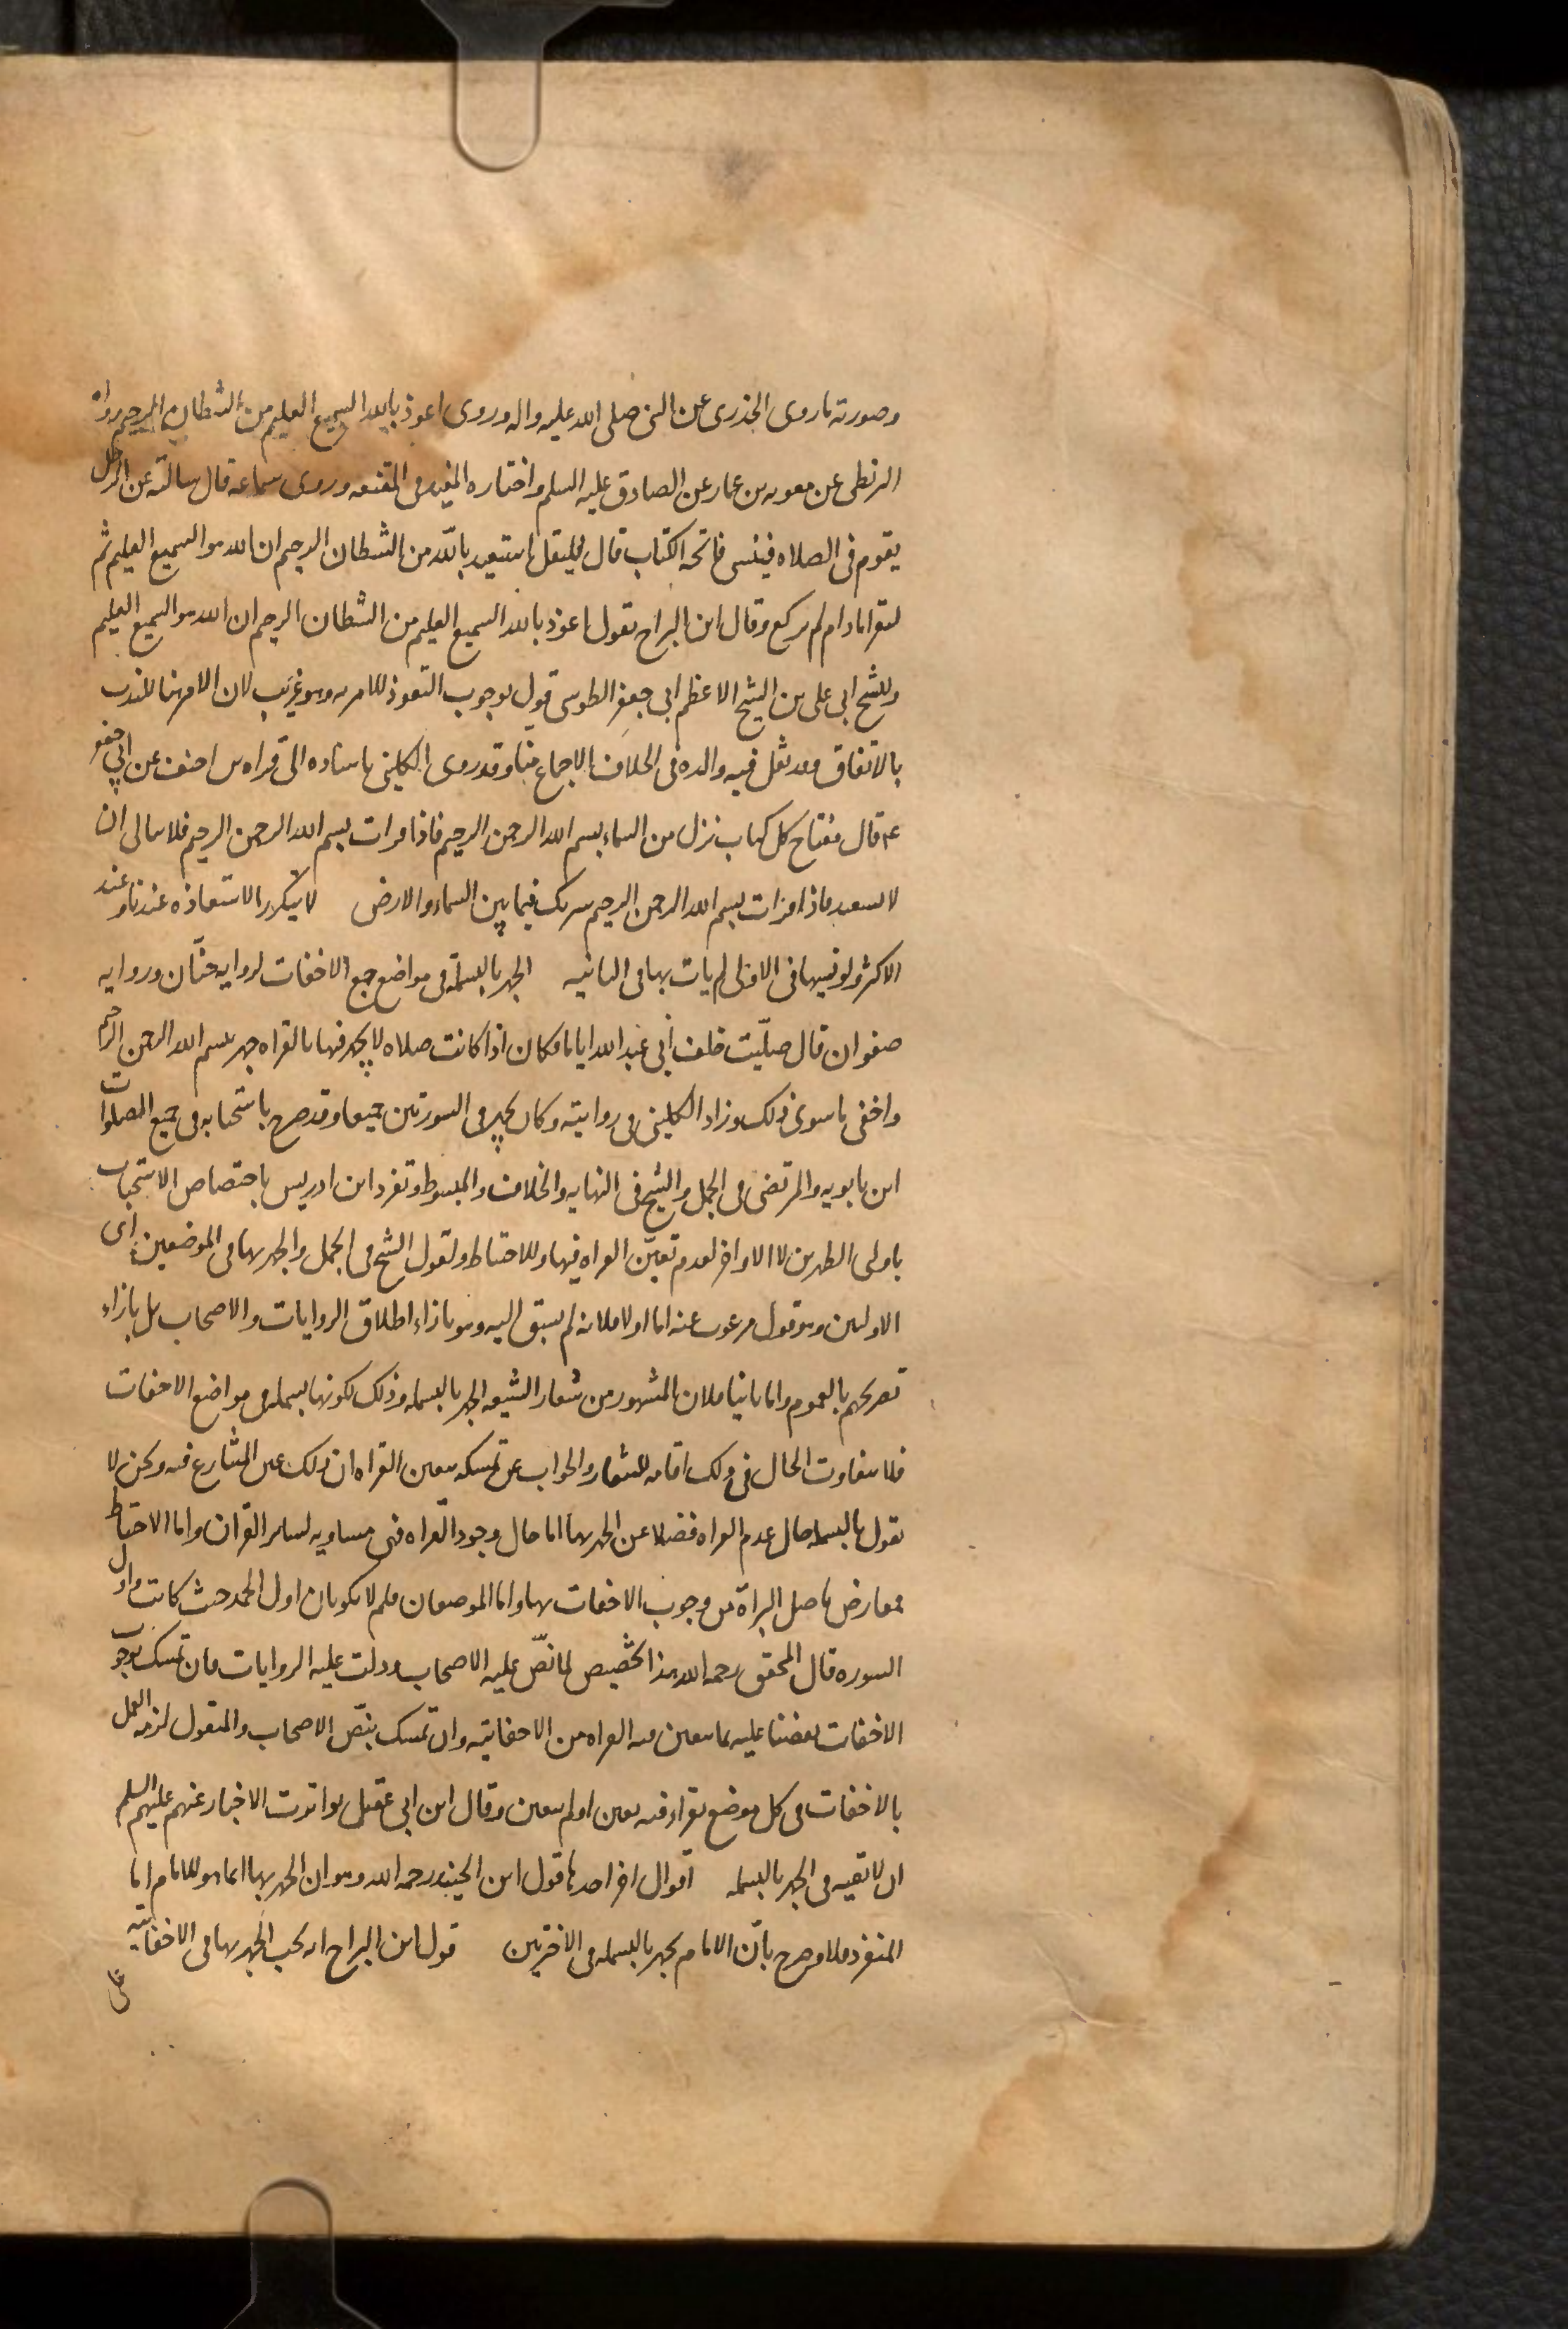 وصورته ما روى الخدرى عن النبى صلى الله عليه واله وروى اعوذ بالله السميع العليم من الشطان الرجيم رواه
البزنطى عن معويه بن عمار عن الصادق عليه السلم واختاره المفيد فى المقنعه وروى سماعه قال سالته عن الرجل
يقوم فى الصلاه فينسى فاتحه الكتاب قال فليقل استعيد بالله من الشطان الرجيم ان الله هو السميع العليم ثم
ليقراها ما دام لم يركع وقال ابن البراج يقول اعوذ بالله السميع العليم من الشطان الرجيم ان الله هو السميع العليم
وللشيخ ابى على بن الشيخ الاعظم ابى جعفر الطوسى قول بوجوب التعوذ للامر به وهو غريب لان الامر هنا للندب
بالاتفاق وقد نقل فيه والده فى الخلاف الاجماع منا وقد روى الكلينى باسناده الى فرات بن احنف عن ابى جعفر
ع قال مفتاح كل كتاب نزل من السماء بسم الله الرحمن الرحيم فاذا قرات بسم الله الرحمن الرحيم فلا تبالى ان
لا تستعيد فاذا قرات بسم الله الرحمن الرحيم سترتك فيما بين السماء والارض لا يتكرر الاستعاذه عندنا وعند
الاكثر ولو نسيها فى الاولى لم يات بها فى الثانيه الجهر بالبسملة فى مواضع الاخفات لروايه حنّان وروايه
صفوان قال صلّيت خلف أبى عبد الله اياما فكان اذا كانت صلاه لا يجهر فيها بالقراه جهر ببسم الله الرحمن الرحيم
واخفى ما سوى ذلك وزاد الكلينى فى روايته وكان يجهر فى السورتين جميعا وقد صرح باستحبابه فى جميع الصلوات
ابن بابويه والمرتضى فى الجمل والشيخ فى النهايه والخلاف والمبسوط وتفرد ابن ادريس باختصاص الاستحباب
باولى الظهرين لا الاواخر لعدم تعيّن القراه فيها وللاحتياط ولقول الشيخ فى الجمل والجهر بها فى الموضعين اى
الاولتين وهو قول مرغوب عنه اما اولا فلانه لم يسبق اليه وهو بازاء اطلاق الروايات والاصحاب بل بازاء
تصريحهم بالعموم واما ثانيا فلان المشهور من شعار الشيعه الجهر بالبسمله وذلك لكونها بسمله فى مواضع الاخفات
فلا يتفاوت الحال فى ذلك اقامه للشعار والجواب عن تمسكه بتعين القراه ان ذلك عين المتنازع فيه ونحن لا
نقول بالبسمله حال عدم القراه فضلا عن الجهر بها اما حال وجود القراه فهى مساويه لسائر القران واما الاحتياط
فمعارض باصل البراءة من وجوب الاخفات بها واما الموضعان فلم لا يكونان اول الحمد حيث كانت واول
السوره قال المحقق رحمه الله هذا تخصيص لما نصّ عليه الاصحاب ودلت عليه الروايات فان تمسك بوجوب
الاخفات نقضنا عليه بما يتعين فيه القراه من الاخفاتيه وان تمسك بنصّ الاصحاب والمنقول لزمه العمل
بالاخفات فى كل موضع يقرا فيه تعين او لم يتعين وقال ابن ابى عقيل تواترت الاخبار عنهم عليهم السلم
ان لا تقيه فى الجهر بالبسمله اقوال اخر احدها قول ابن الجنيد رحمه الله وهو ان الجهر بها انما هو للامام اما
المنفرد فلا وصرح بأن الامام يجهر بالبسمله فى الاخرتين قول ابن البراج انه يجب الجهر بها فى الاخفاتيه
على